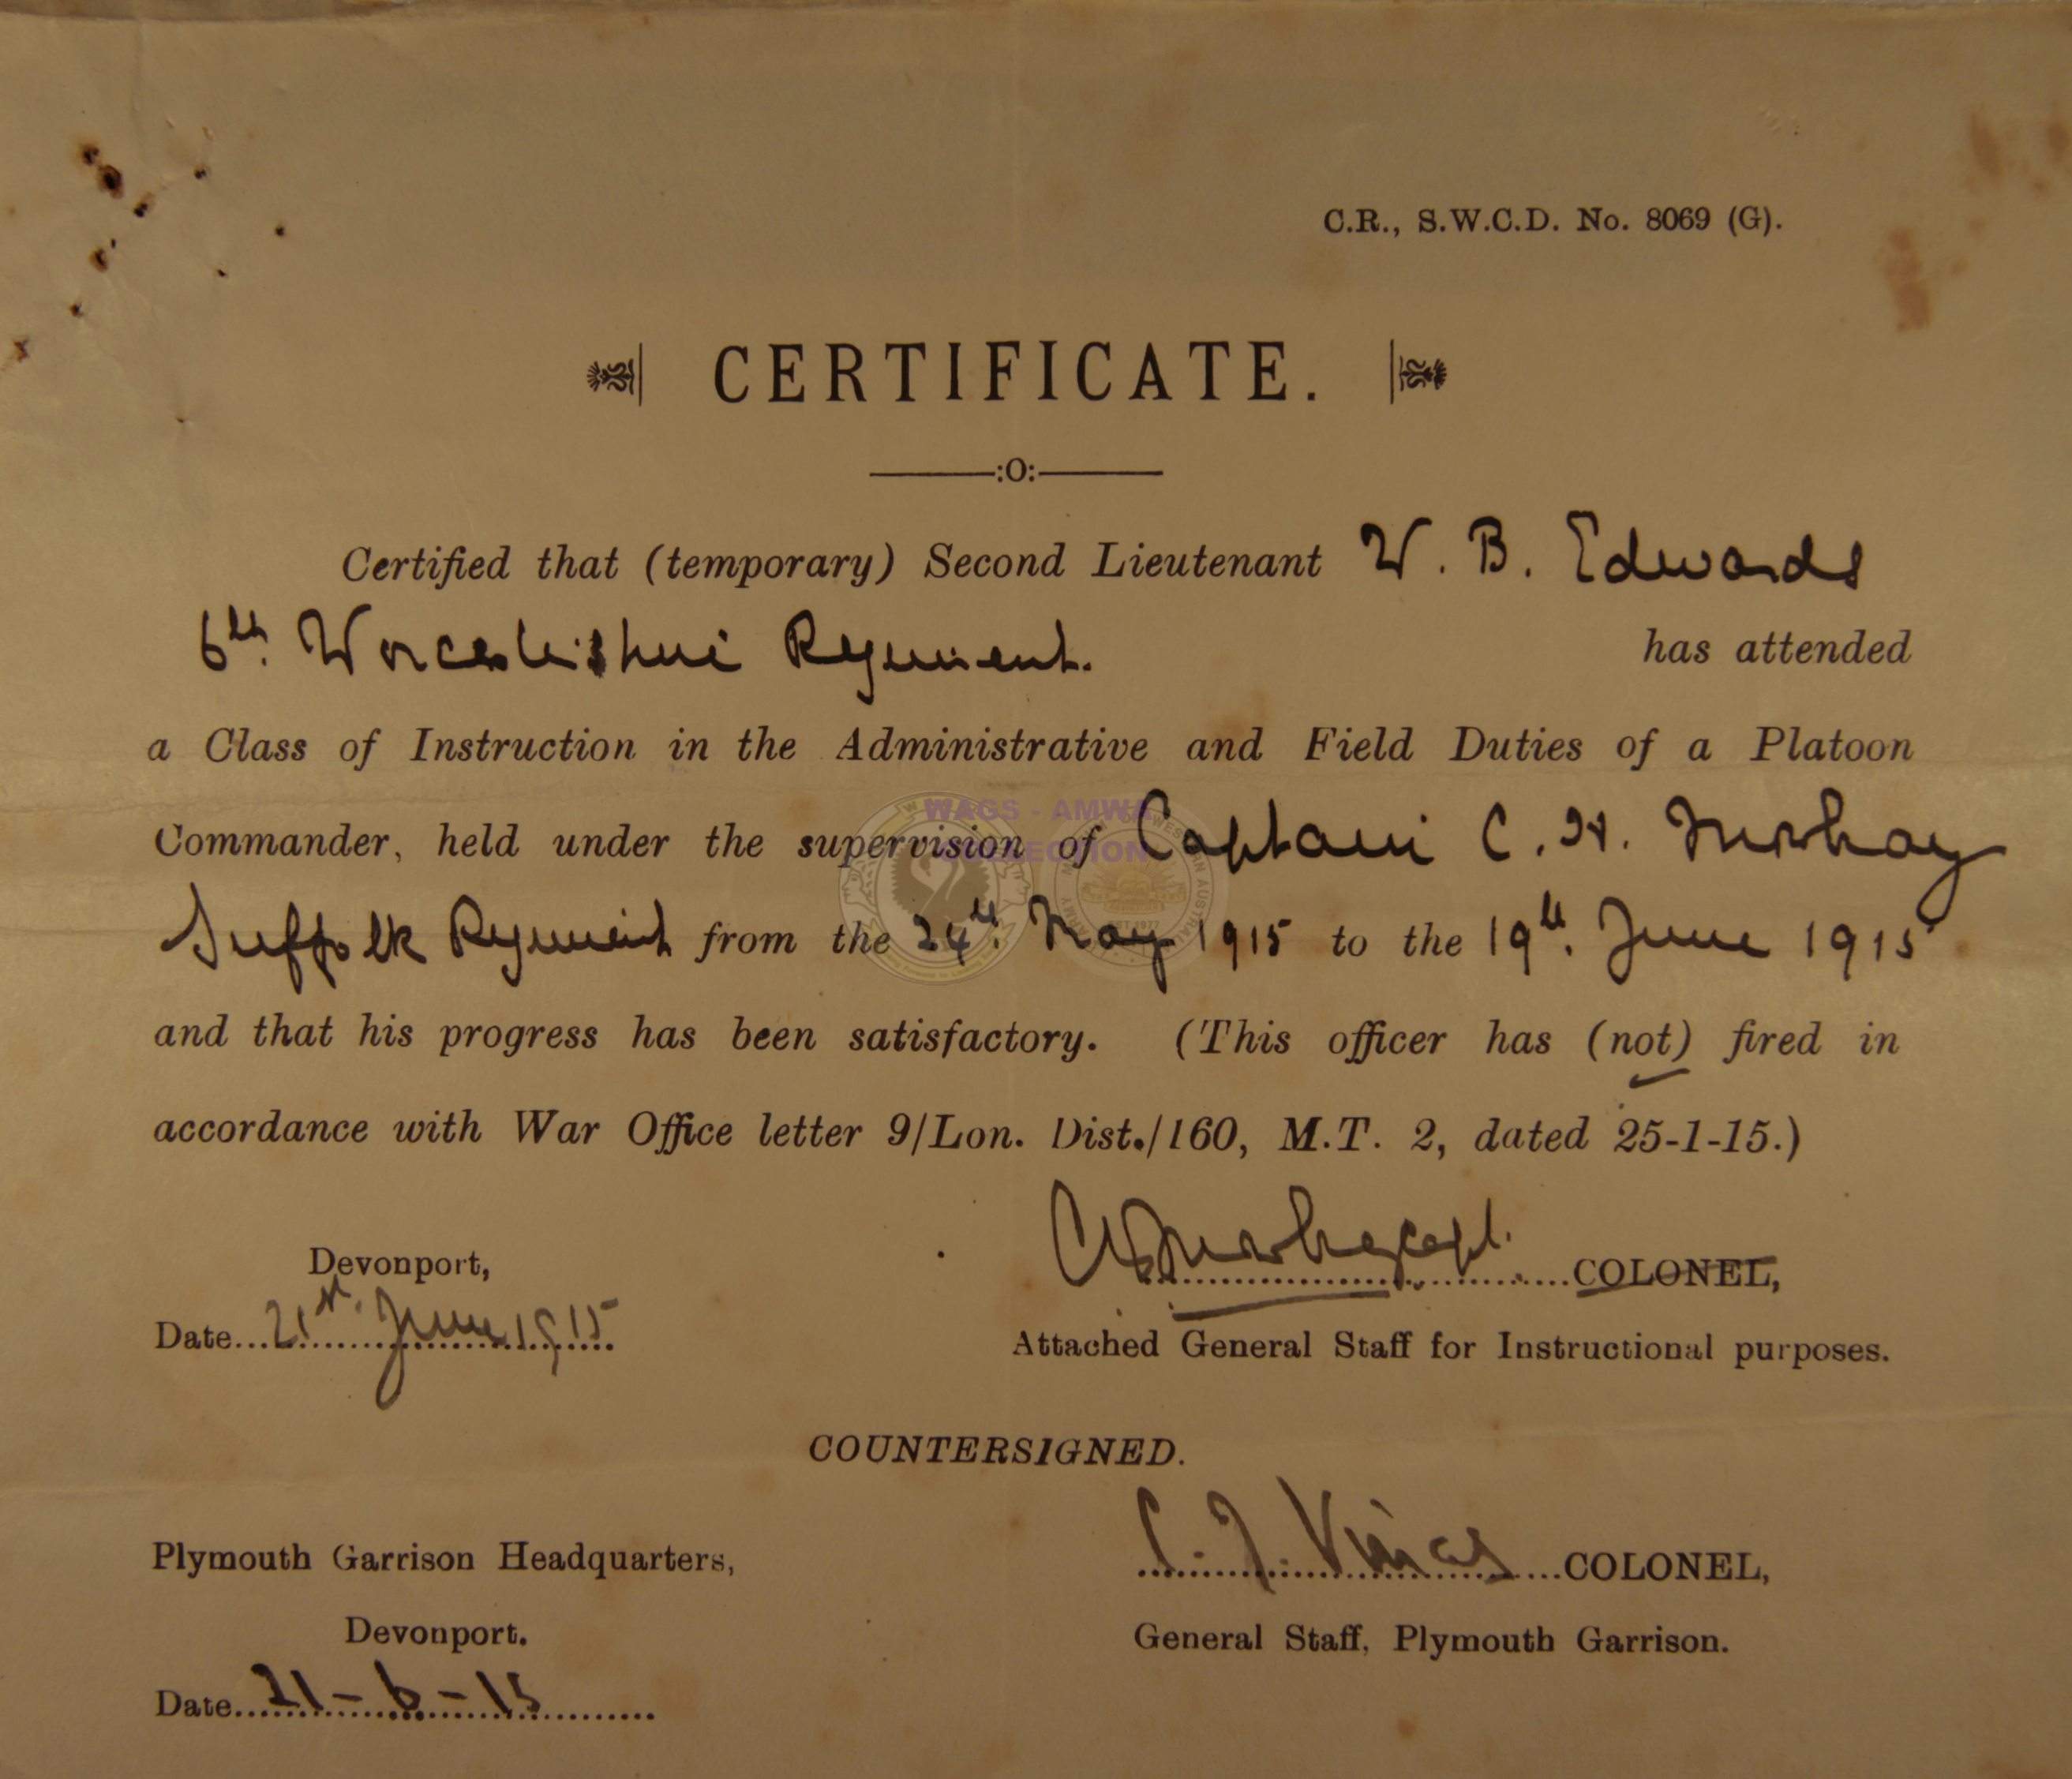 C.R., S.W.C.D. No. 8069 (G).
CERTIFICATE.
:O:
Certified that (temporary) Second Lieutenant W. B. Edwards
6th. Worcestershire Regiment. has attended
a Class of Instruction in the Administrative and Field Duties of a Platoon
WAGS - AMWA
Commander, held under the supervision of Captain C. H.
COLLECTION
Suffolk Regiment from the 24th. May 1915 to the 19th. June 1915
and that his progress has been satisfactory. (This officer has (not) fired in
accordance with War Office letter 9/Lon. Dist./160, M.T. 2, dated 25-1-15.)
Devonport,
Capt. COLONEL,
Date...21st. June 1915
Attached General Staff for Instructional purposes.
COUNTERSIGNED.
Plymouth Garrison Headquarters,
COLONEL,
Devonport.
General Staff, Plymouth Garrison.
Date...21-6-15